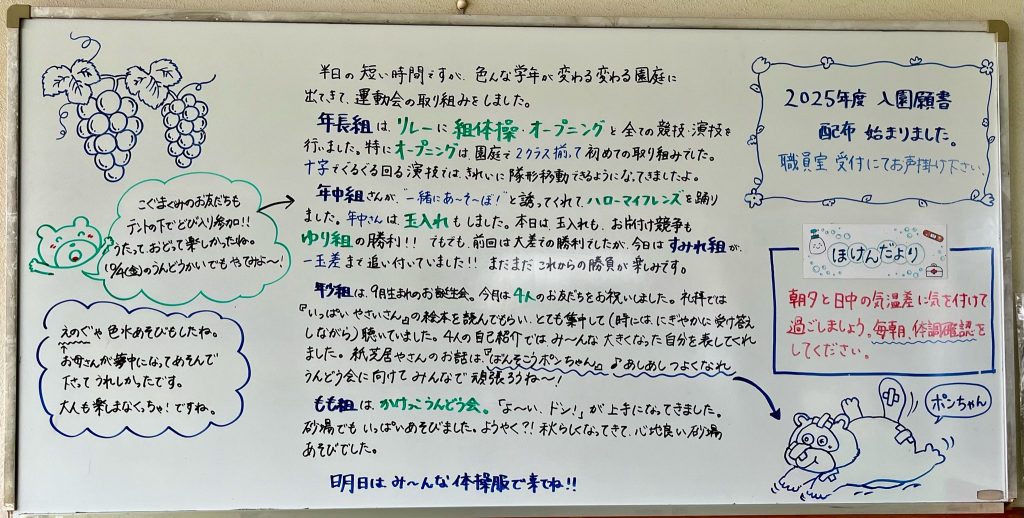 半日の短い時間ですが、色んな学年が変わる変わる園庭に
出てきて、運動会の取り組みをしました。
年長組は、リレーに組体操・オープニングと全ての競技・演技を
行いました。特にオープニングは、園庭で2クラス揃って初めての取り組みでした。
十字でぐるぐる回る演技では、きれいに隊形移動できるようになってきましたよ。
年中組さんが、"一緒にあ〜そ〜ぼ!"と誘ってくれて、ハローマイフレンズを踊り
ました。年中さんは玉入れもしました。本日は、玉入れも、お片付け競争も
ゆり組の勝利!!でもでも、前回は大差での勝利でしたが、今日はすみれ組が、
一玉差まで追い付いていました!!まだまだこれからの勝負が楽しみです。
年少組は、9月生まれのお誕生会。今月は4人のお友だちをお祝いしました。礼拝では
『いっぱいやさいさん』の絵本を読んでもらい、とても集中して(時には、にぎやかに受け答え
しながら)聴いていました。4人の自己紹介では、み〜んな大きくなった自分を表してくれ
ました。紙芝居やさんのお話は、『ばんそこうポンちゃん』♪あしあしつよくなれ
うんどう会に向けてみんなで頑張ろうね〜!
もも組は、かけっこうんどう会。「よ〜い、ドン!」が上手になってきました。
砂場でもいっぱいあそびました。ようやく?!秋らしくなってきて、心地良い砂場
あそびでした。
明日はみ〜んな体操服で来てね!!
こぐまぐみのお友だちも
テントの下でとび入り参加!!
うたっておどって楽しかったね。
10/4(金)のうんどうかいでもやってみよ〜!
えのぐや色水あそびもしたね。
お母さんが夢中になってあそんで
下さってうれしかったです。
大人も楽しまなくっちゃ!ですね。
2025年度 入園願書
配布 始まりました。
職員室受付にてお声掛け下さい。
ほけんだより
朝夕と日中の気温差に気を付けて
過ごしましょう。毎朝、体調確認を
してください。
ポンちゃん